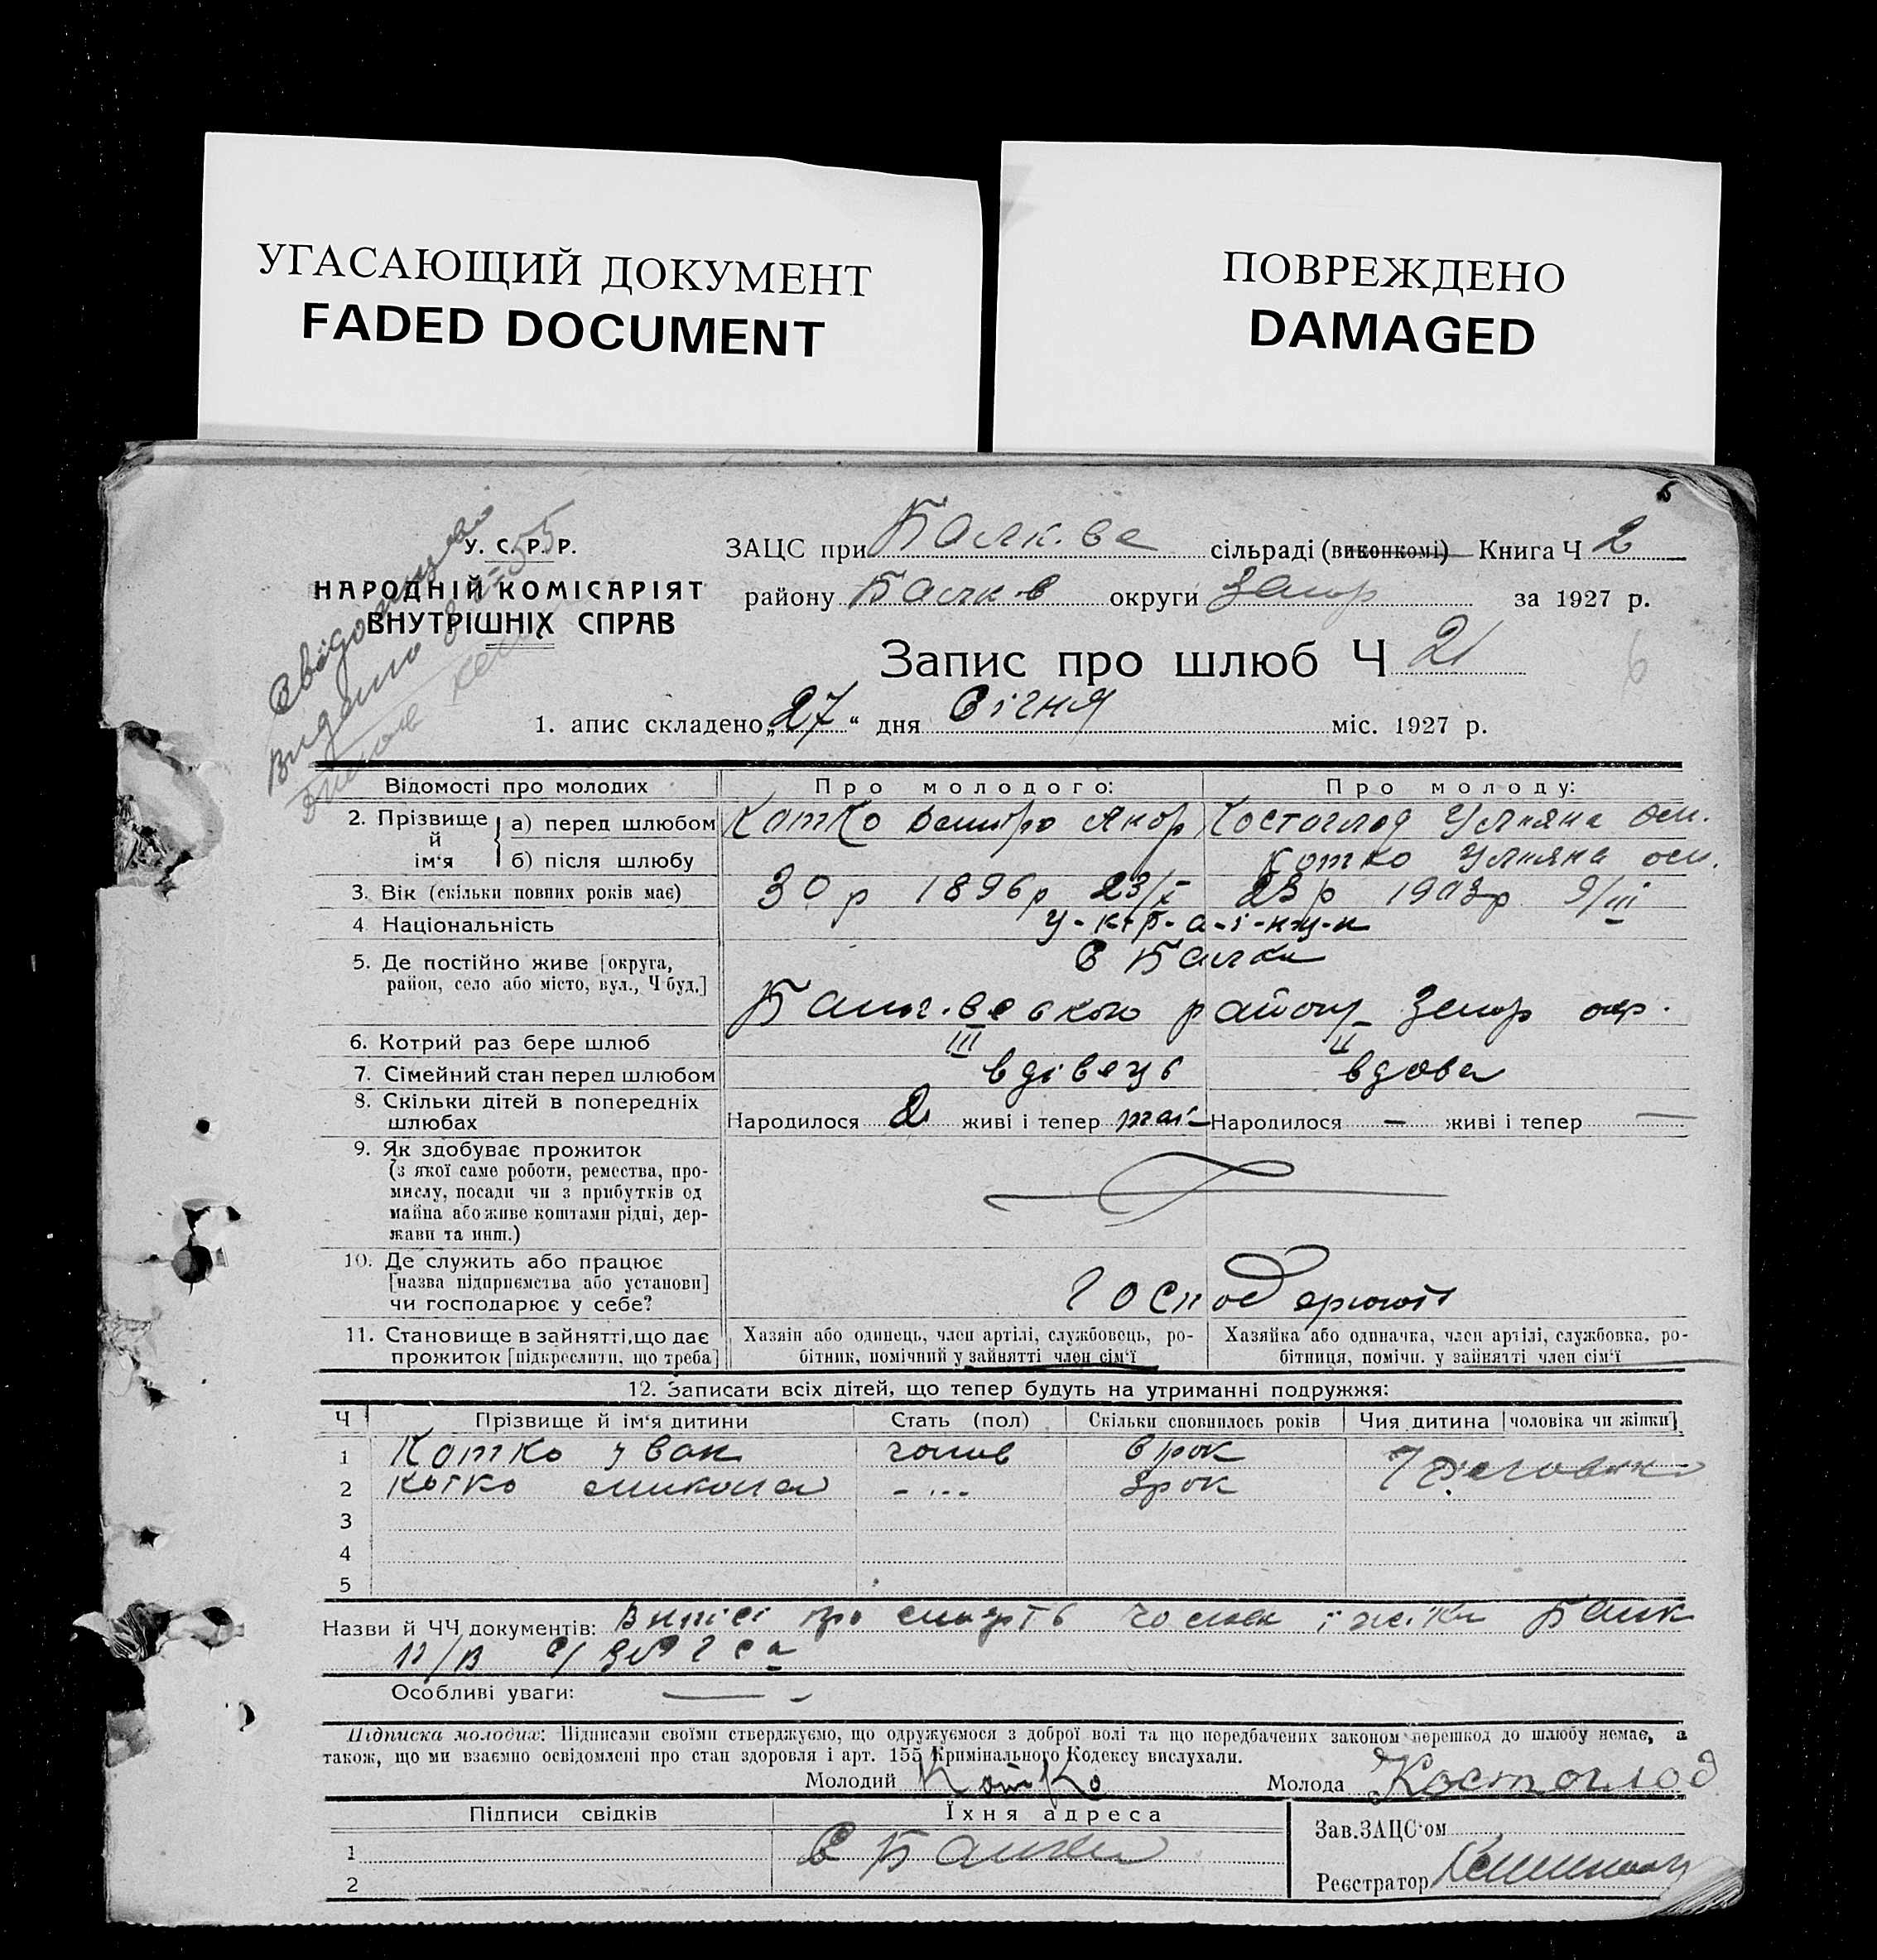 УГАСАЮЩИЙ ДОКУМЕНТ
FADED DOCUMENT
ПОВРЕЖДЕНО
DAMAGED
6
Свідоцтво
Видано
У. С. Р. Р.
НАРОДНІЙ КОМІСАРІЯТ
ВНУТРІШНІХ СПРАВ
ЗАЦС при Балк.ве сільраді (виконкомі) Книга Ч 2
району Балк в округи Запор за 1927 р.
Запис про шлюб Ч 21
6
1. апис складено „27“ дня Січня міс. 1927 р.
Відомості про молодих Про молодого: Про молоду:
2. Прізвище й ім'я а) перед шлюбом Котко Дмитро Якор Костоглод Уляна Ос.
б) після шлюбу Котко Уляна ос.
3. Вік (скільки повних років має) 30 р 1896 р 23/X 23 р 1903 р 9/III
4 Національність у-к-р-а-ї-н-ц-и
5. Де постійно живе [округа, район, село або місто, вул., Ч буд.] С Балки
району Запор окр.
6. Котрий раз бере шлюб III II
7. Сімейний стан перед шлюбом вдівець вдова
8. Скільки дітей в попередніх шлюбах Народилося 2 живі і тепер так Народилося — живі і тепер —
9. Як здобуває прожиток
(з якої саме роботи, ремества, про-
мислу, посади чи з прибутків од
майна або живе коштами рідні, дер-
жави та инш.)
10. Де служить або працює
[назва підприємства або установи]
чи господарює у себе?
11. Становище в зайнятті, що дає прожиток [підкреслити, що треба] Хазяїн або одинець, член артілі, службовець, ро-
бітник, помічний у зайнятті член сім'ї
Хазяйка або одиначка, член артілі, службовка, ро-
бітниця, помічн. у зайнятті член сім'ї
12. Записати всіх дітей, що тепер будуть на утриманні подружжя:
Ч Прізвище й ім'я дитини Стать (пол) Скільки сповнилось років Чия дитина [чоловіка чи жінки]
1 Котко Іван чолов 6 рок
2 Котко Микола -"- 3 рок
3
4
5
Назви й ЧЧ документів: Виписі про смерть
Особливі уваги: —
Підписка молодих: Підписами своїми стверджуємо, що одружуємося з доброї волі та що передбачених законом перешкод до шлюбу немає, а
також, що ми взаємно освідомлені про стан здоровля і арт. 155 Кримінального Кодексу вислухали.
Молодий Котко Молода Костоглод
Підписи свідків Їхня адреса
1 С Балки
2
Зав. ЗАЦС'ом
Реєстратор